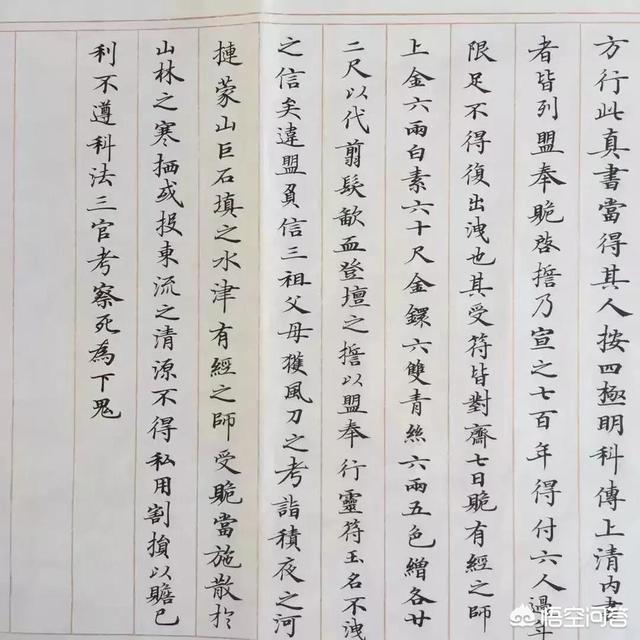 方行此真書當得其人按四極明科傳上清內
者皆列盟奉賉啓擔乃宣之七百年得付六人過
限足不得復出洩也其受符皆對齋七日賉有經之師
上金六兩白素六十尺金鐶六雙青絲六兩五色繒各廿
二尺以代翦髮歃血登壇之擔以盟奉行靈符玉名不洩
之信矣違盟負信三祖父母獲風刀之考詣積夜之河
摙蒙山巨石填之水津有經之師受賉當施散於
山林之寒栖或投東流之清源不得私用割損以贍己
利不遵科法三官考察死為下鬼
悟空问答